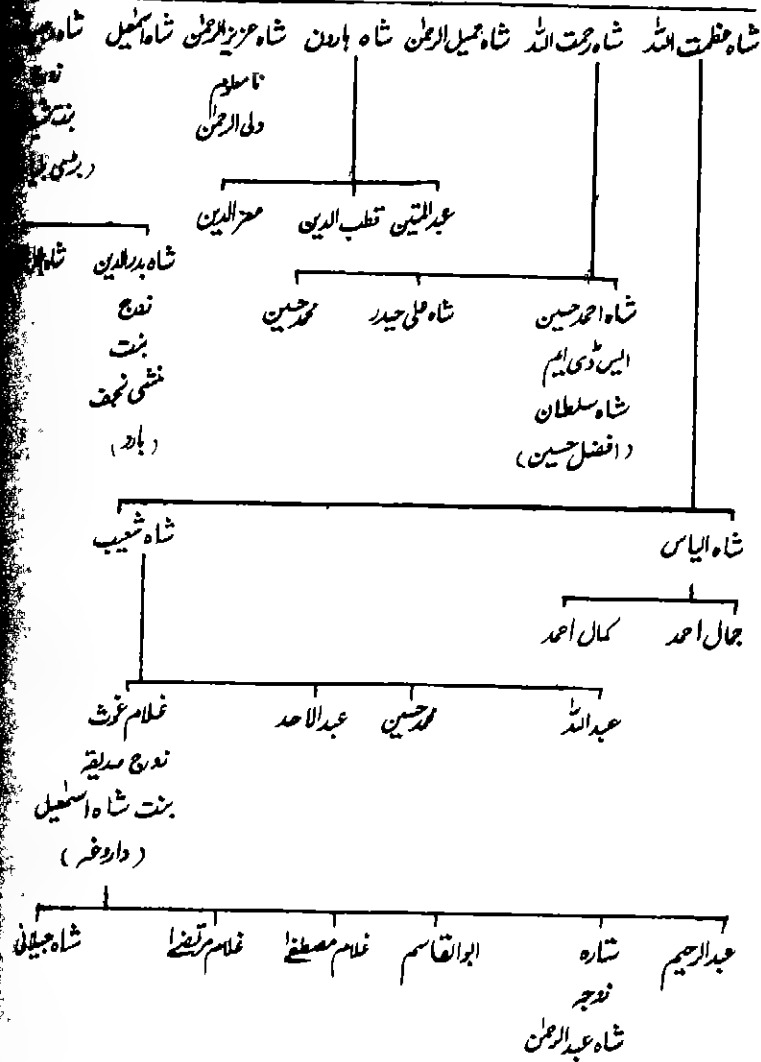 شاہ عظمت اللہ شاہ رحمت اللہ شاہ جمیل الرحمٰن شاہ ہارون شاہ عزیز الرحمٰن شاہ اسمٰعیل شاہ
نامعلوم
ولی الرحمٰن
زوج
بنت
(بڑی
عبدالمتین قطب الدین معز الدین
شاہ بدرالدین شاہ
زوج
بنت
منشی نجف
(بارو)
شاہ احمد حسین شاہ علی حیدر محمد حسین
ایس ڈی ایم
شاہ سلطان
(افضل حسین)
شاہ الیاس شاہ شعیب
جمال احمد کمال احمد
عبداللہ محمد حسین عبدالاحد غلام غوث
زوج صدیقہ
بنت شاہ اسمٰعیل
(داروغہ)
عبدالرحیم ستارہ ابوالقاسم غلام مصطفےٰ غلام مرتضےٰ شاہ جیلانی
زوجہ
شاہ عبدالرحمٰن